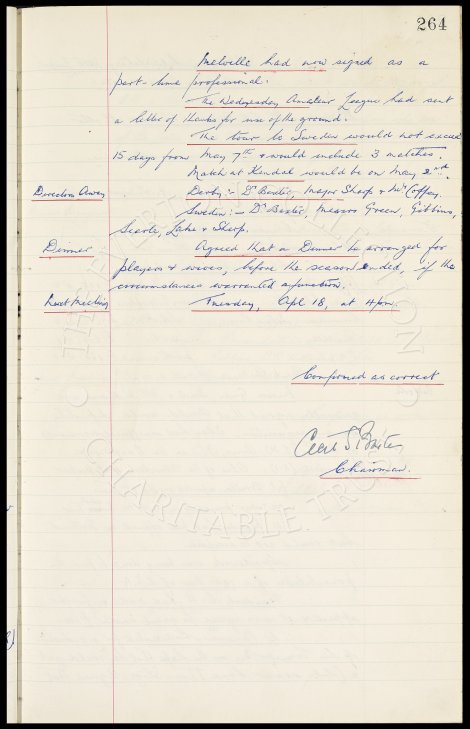 264
Melville had now signed as a
part-time professional.
The Wednesday Amateur League had sent
a letter of thanks for use of the ground.
The tour to Sweden would not exceed
15 days from May 7th & would include 3 matches.
Match at Kendal would be on May 2nd.
Directors Away
Derby:- Dr Baxter, Major Sharp & Mr Coffey.
Sweden:- Dr Baxter, Messrs Green, Gibbins,
Searle, Lake & Sharp.
Dinner
Agreed that a Dinner be arranged for
players & wives, before the season ended, if the
circumstances warranted a function.
Next Meeting
Tuesday, Apl 18, at 4pm.
Confirmed as correct
Cecil S Baxter
Chairman.
CHARITABLE